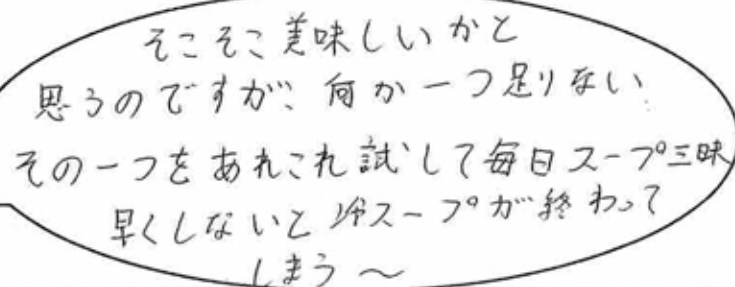 そこそこ美味しいかと
思うのですが、何か一つ足りない
その一つをあれこれ試して毎日スープ三昧
早くしないと冷スープが終わって
しまう〜